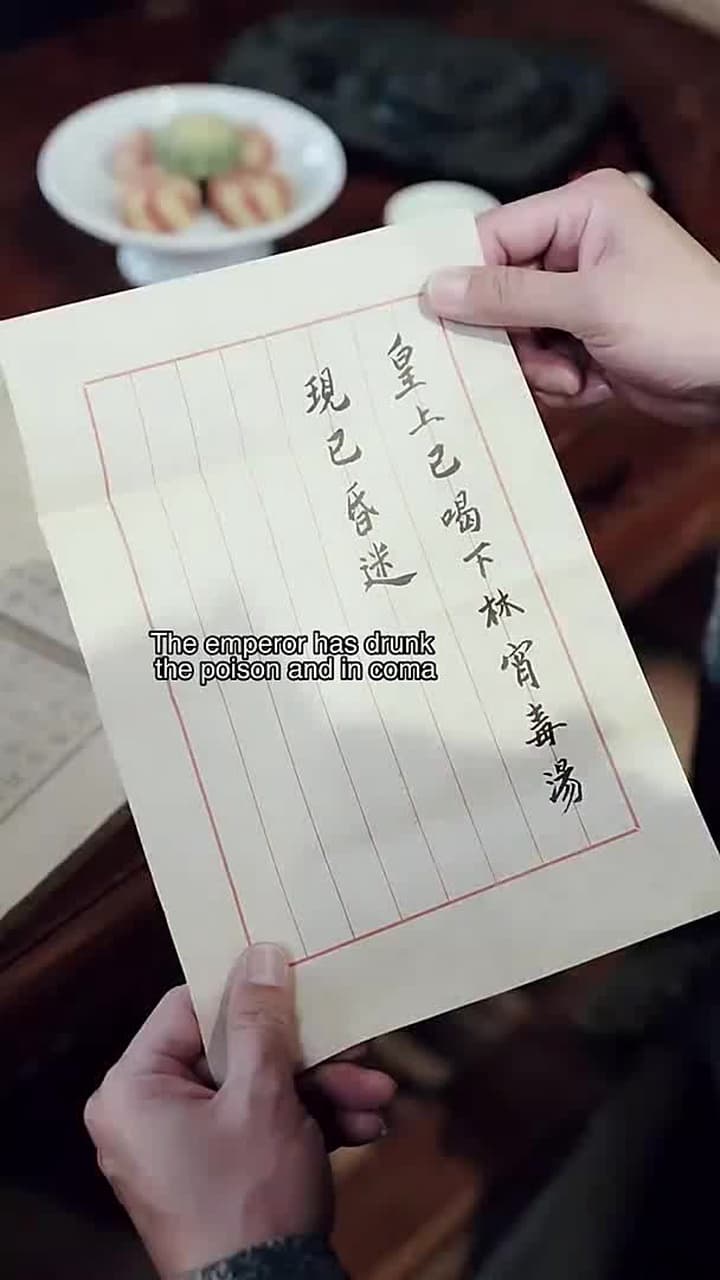 皇上已喝下林宵毒湯
現已昏迷
The emperor has drunk
the poison and in coma